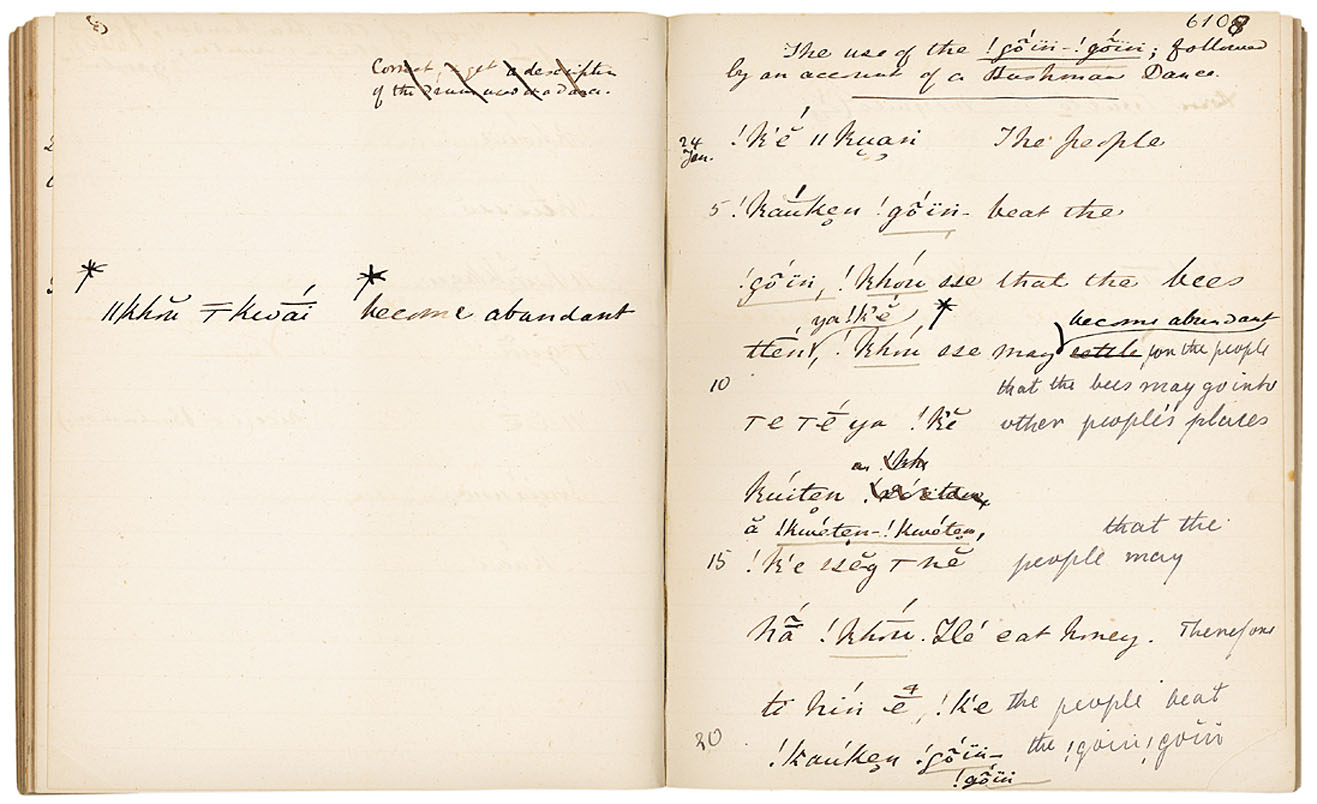 Correct, & get a description
of the Drum used at a Dance.
* *
ǁkhŏu ⊤ kwāí become abundant
6108
The use of the !gõïn-!gõïn; followed
by an account of a Bushman Dance.
24
Jan.
!k'ĕ ǁkuan The people
5 !kaúken !gõïn- beat the
!gõïn, !khóu sse that the bees
ya !k'ĕ * become abundant
ttēń, !khóu sse may settle for the people
10 that the bees may go into
⊤e ⊤é ya !k'ĕ other people's places
kúïten
ă !kwéten-!kwéten, that the
15 !k'e ssĕg ⊤nĕ people may
hā́ !khóu. Hé eat honey. Therefore
tí hín ē, !k'e the people beat
20 !kaúken !gõïn- the !goin!goïn
!gõïn